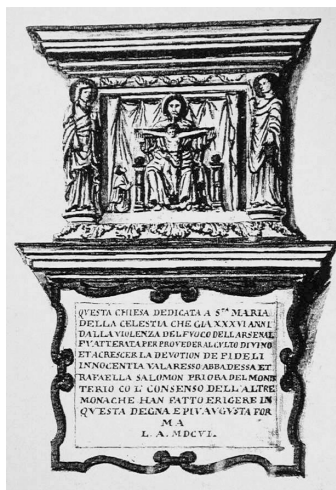 QVESTA CHIESA DEDICATA A S.TA MARIA
DELLA CELESTIA CHE GIA XXXVI ANNI
DALLA VIOLENZA DEL FVOCO DELL ARSENAL
FV ATTERATA PER PROVEDER AL CVLTO DIVINO
ET ACRESCER LA DEVOTION DE FIDELI
INNOCENTIA VALARESSO ABBADESSA ET
RAFAELLA SALOMON PRIORA DEL MONS
TERIO CO L CONSENSO DELL ALTRE
MONACHE HAN FATTO ERIGERE IN
QVESTA DEGNA E PIV AVGVSTA FOR
MA
L. A. MDCVI.